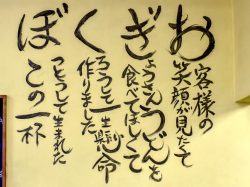 お客様の
笑顔が見たくて
ぎょうさんうどんを
食べてほしくて
くろうして一生懸命
作りました
ぼつとつして生まれた
この一杯